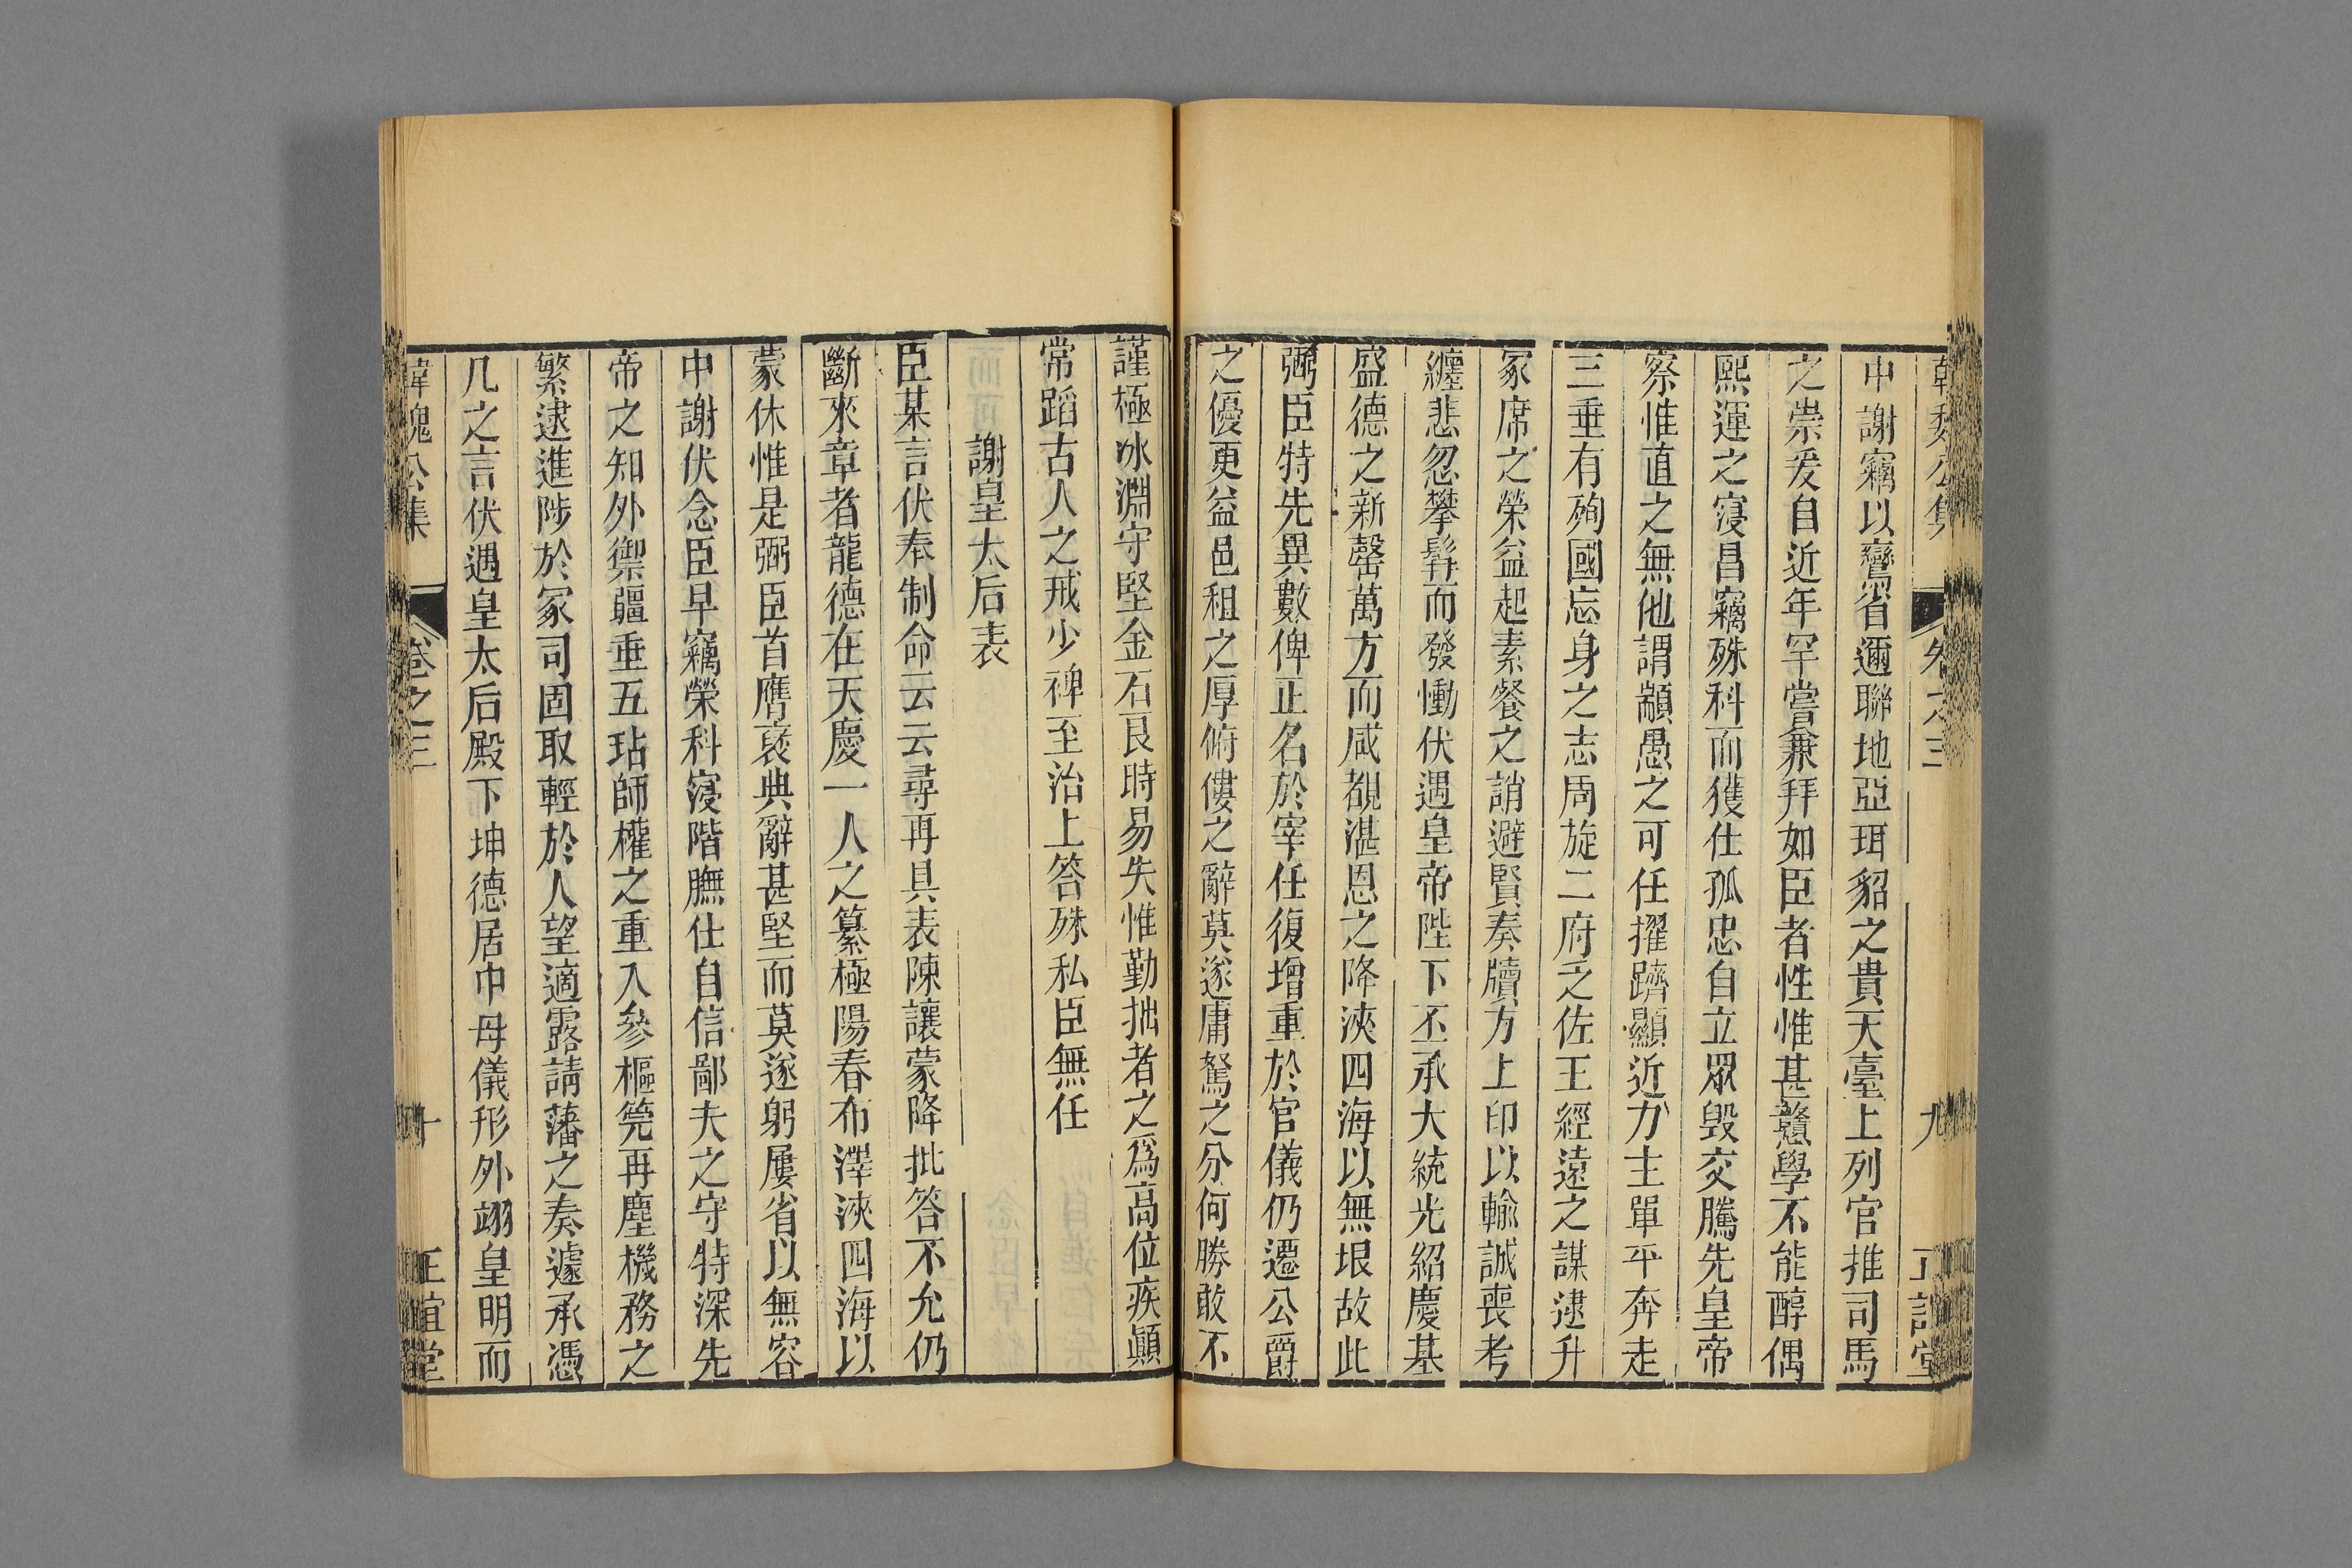 中謝竊以鸞省邇聯地亞珥貂之貴天臺上列官推司馬
之崇爰自近年罕嘗兼拜如臣者性惟甚戇學不能醇偶
熙運之寖昌竊殊科而獲仕孤忠自立眾毀交騰先皇帝
察惟直之無他謂顓愚之可任擢躋顯近力主單平奔走
三垂有殉國忘身之志周旋二府乏佐王經遠之謀逮升
冢席之榮益起素餐之誚避賢奏牘方上印以輸誠喪考
纏悲忽攀髯而發慟伏遇皇帝陛下丕承大統光紹慶基
盛德之新罄萬方而咸覩湛恩之降浹四海以無垠故此
弼臣特先異數俾正名於宰任復增重於官儀仍遷公爵
之優更益邑租之厚俯僂之辭莫遂庸駑之分何勝敢不
謹極冰淵守堅金石艮時易失惟勤拙者之爲高位疾顚
常蹈古人之戒少裨至治上答殊私臣無任
謝皇太后表
臣某言伏奉制命云云尋再具表陳讓蒙降批答不允仍
斷來章者龍德在天慶一人之纂極陽春布澤浹四海以
蒙休惟是弼臣首膺褒典辭甚堅而莫遂躬屢省以無容
中謝伏念臣早竊榮科寖階膴仕自信鄙夫之守特深先
帝之知外禦疆垂五玷師權之重入參樞筦再塵機務之
繁逮進陟於冢司固取輕於人望適露請藩之奏遽承憑
几之言伏遇皇太后殿下坤德居中母儀形外翊皇明而
韓魏公集 卷之三 十 正誼堂